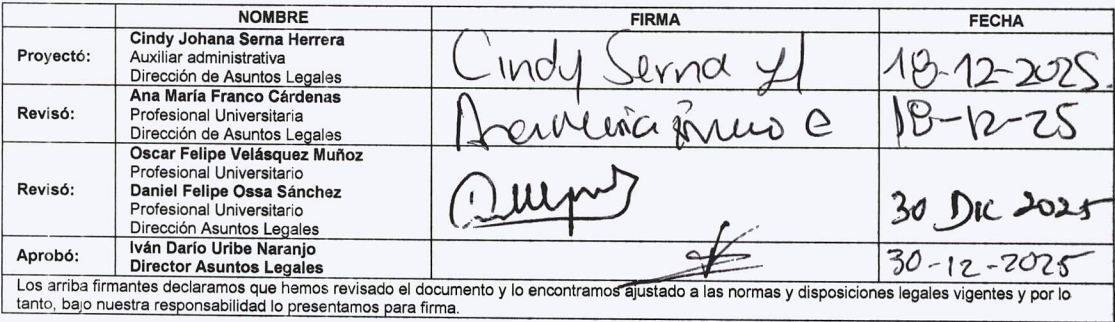 NOMBRE FIRMA FECHA
Proyectó: Cindy Johana Serna Herrera
Auxiliar administrativa
Dirección de Asuntos Legales
Cindy Serna H 18-12-2025.
Revisó: Ana María Franco Cárdenas
Profesional Universitaria
Dirección de Asuntos Legales
Ana María Franco C 18-12-25
Revisó: Oscar Felipe Velásquez Muñoz
Profesional Universitario
Daniel Felipe Ossa Sánchez
Profesional Universitario
Dirección Asuntos Legales
30 Dic 2025
Aprobó: Iván Darío Uribe Naranjo
Director Asuntos Legales
30-12-2025
Los arriba firmantes declaramos que hemos revisado el documento y lo encontramos ajustado a las normas y disposiciones legales vigentes y por lo
tanto, bajo nuestra responsabilidad lo presentamos para firma.